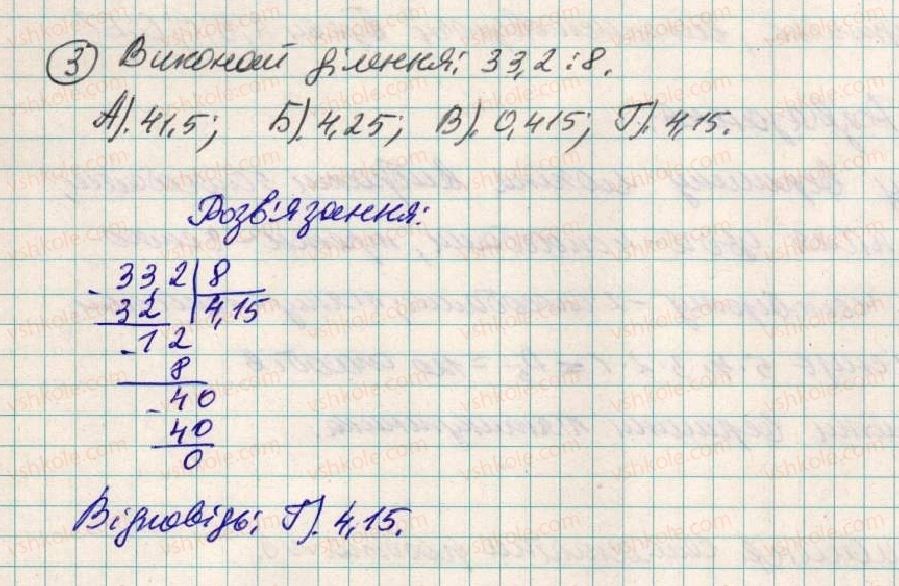 3 Виконай ділення: 33,2 : 8.
А). 41,5; Б). 4,25; В). 0,415; Г). 4,15.
Розв'язання:
- 33,2 | 8
32 | 4,15
- 12
8
- 40
40
0
Відповідь: Г). 4,15.